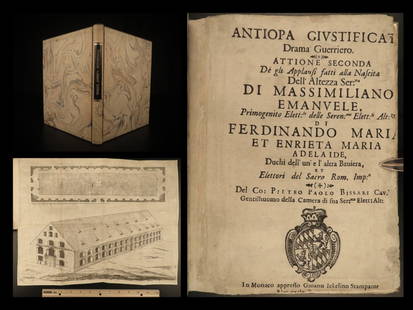 ANTIOPA GIVSTIFICAT
Drama Guerriero.
ATTIONE SECONDA
De gli Applausi fatti alla Nascita
Dell'Altezza Ser.ma
DI MASSIMILIANO
EMANVELE,
Primogenito Elett.le delle Seren.me Elett.li Alt.
DI
FERDINANDO MARIA
ET ENRIETA MARIA
ADELAIDE,
Duchi dell'un' e l'altra Baviera,
ET
Elettori del Sacro Rom. Imp.
Del Co: PIETRO PAOLO BISSARI Cav.
Gentilhuomo della Camera di sua Ser.ma Elett: Alt:
In Monaco appresso Giovanni Jekelino Stampatore